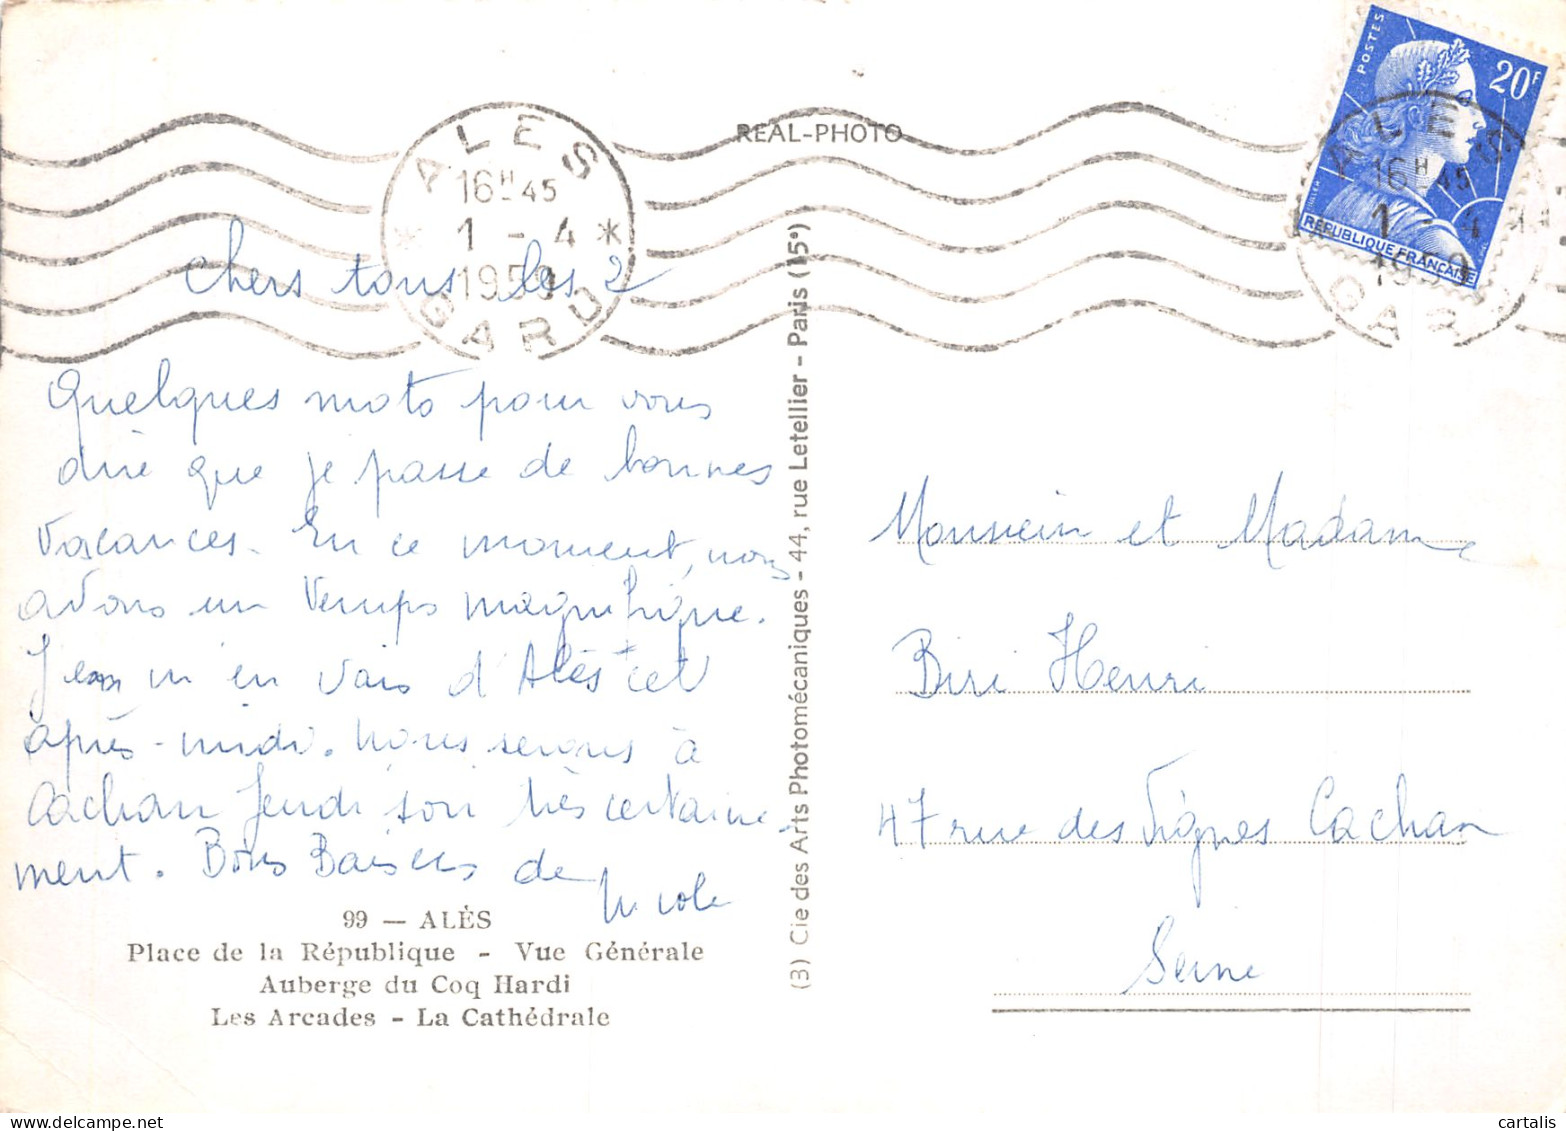 REAL-PHOTO
ALES
16H45
1 - 4
1959
GARD
POSTES
20F
RÉPUBLIQUE FRANÇAISE
ALES
16H45
1 - 4
1959
GAR
Chers tous les 2
Quelques mots pour vous
dire que je passe de bonnes
vacances. En ce moment, nous
avons un temps magnifique.
J'en vais d'Alès cet
après-midi. Nous serons à
Cachan Jeudi soir très certaine
ment. Bons Baisers de
Nicole
99 — ALÈS
Place de la République - Vue Générale
Auberge du Coq Hardi
Les Arcades - La Cathédrale
(3) Cie des Arts Photomécaniques - 44, rue Letellier - Paris (15e)
Monsieur et Madame
Biri Henri
47 rue des Vignes Cachan
Seine
cartalis